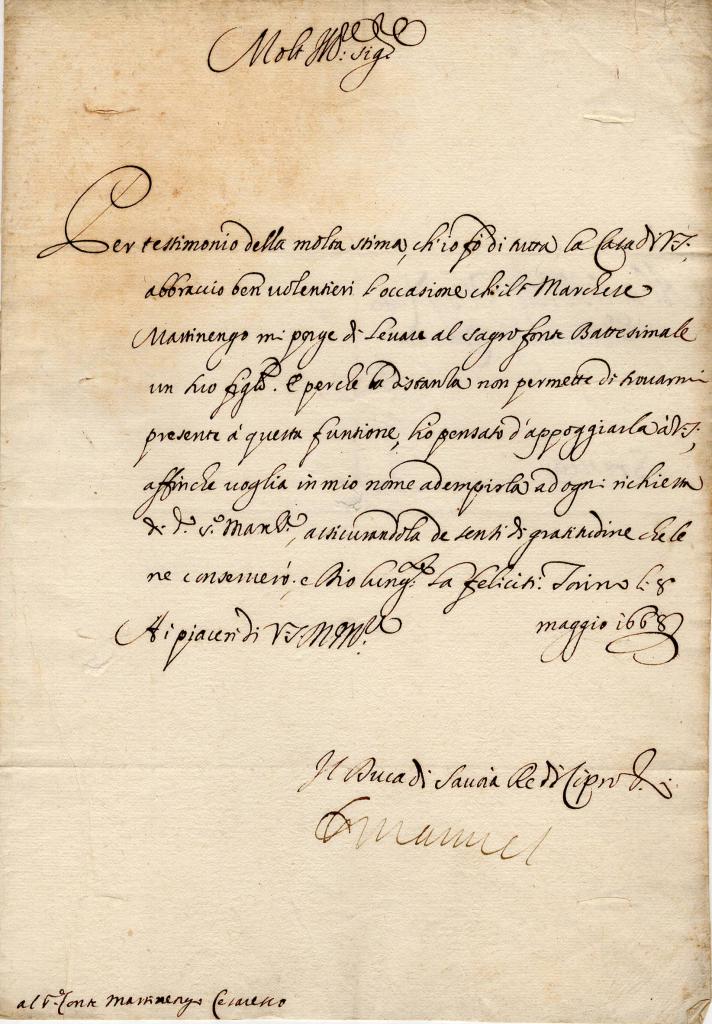 Molt Ill.re Sig.re
Per testimonio della molta stima, ch'io fò di tutta la Casa di V.S.,
abbraccio ben volentieri l'occasione ch'il Marchese
Martinengo mi porge di levare al sagro fonte Battesimale
un suo figlio. E perche la distanza non permette di trovarmi
presente à questa funtione, hò pensato d'appoggiarla à V.S.,
affinche voglia in mio nome adempirla ad ogni richiesta
di d.o S.r March.e, assicurandola de senti di gratitudine che le
ne conserverò, e Dio lung.te la feliciti. Torino li 8
maggio 1668
Ai piaceri di V.S. M. Ill.re
Il Duca di Savoia Re di Cipro &.
Emanuel
al S.r Conte Martinengo Cesaresco